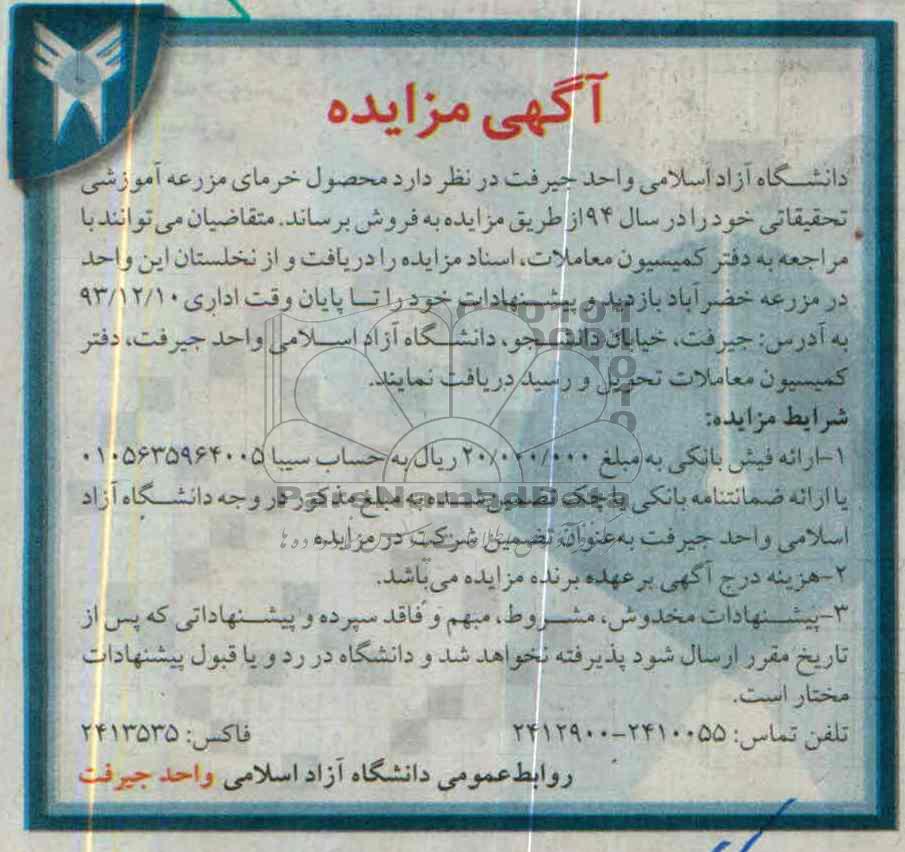 آگهی مزایده
دانشگاه آزاد اسلامی واحد جیرفت در نظر دارد محصول خرمای مزرعه آموزشی
تحقیقاتی خود را در سال ۹۴ از طریق مزایده به فروش برساند. متقاضیان می توانند با
مراجعه به دفتر کمیسیون معاملات، اسناد مزایده را دریافت و از نخلستان این واحد
در مزرعه خضرآباد بازدید و پیشنهادات خود را تا پایان وقت اداری ۹۳/۱۲/۱۰
به آدرس: جیرفت، خیابان دانشجو، دانشگاه آزاد اسلامی واحد جیرفت، دفتر
کمیسیون معاملات تحویل و رسید دریافت نمایند.
شرایط مزایده:
۱-ارائه فیش بانکی به مبلغ ۲۰/۰۰۰/۰۰۰ ریال به حساب سیبا ۰۱۰۵۶۳۵۹۶۴۰۰۵
یا ارائه ضمانتنامه بانکی یا چک تضمین شده به مبلغ مذکور در وجه دانشگاه آزاد
اسلامی واحد جیرفت به عنوان تضمین شرکت در مزایده
ParsNamadData
۲-هزینه درج آگهی بر عهده برنده مزایده می باشد.
۳-پیشنهادات مخدوش، مشروط، مبهم و فاقد سپرده و پیشنهاداتی که پس از
تاریخ مقرر ارسال شود پذیرفته نخواهد شد و دانشگاه در رد و یا قبول پیشنهادات
مختار است.
تلفن تماس: ۲۴۱۰۰۵۵-۲۴۱۲۹۰۰ فاکس: ۲۴۱۳۵۳۵
روابط عمومی دانشگاه آزاد اسلامی واحد جیرفت